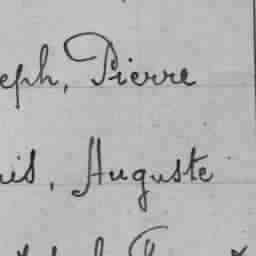 eph, Pierre
uis, Auguste